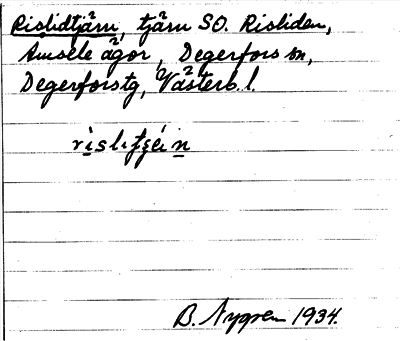 Rislidtjärn, tjärn SO. Risliden,
Amsele ägor, Degerfors sn,
Degerforstg, Västerb. l.
B. Nygren 1934.